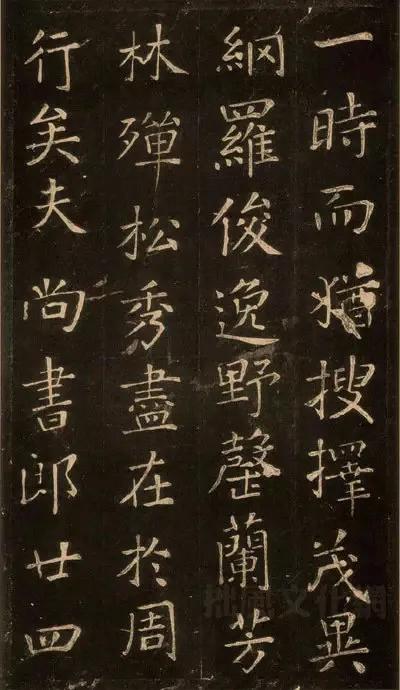 一時而猶搜擇茂異
網羅俊逸野罄蘭芳
林殫松秀盡在於周
行矣夫尚書郎廿四
拙風文化網